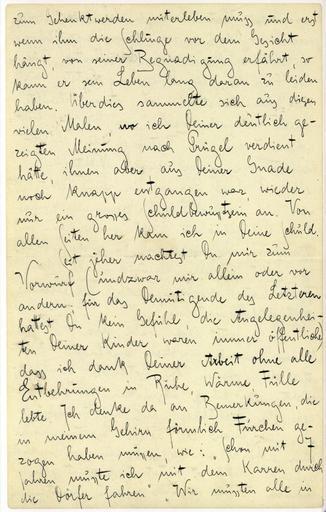 zum Gehenktwerden miterleben muss und erst
wenn ihm die Schlinge vor dem Gesicht
hängt, von seiner Begnadigung erfährt, so
kann er sein Leben lang daran zu leiden
haben. Überdies sammelte sich aus diesen
vielen Malen, wo ich Deiner deutlich ge-
zeigten Meinung nach Prügel verdient
hätte, ihnen aber aus Deiner Gnade
noch knapp entgangen war, wieder
nur ein grosses Schuldbewusstsein an. Von
allen Seiten her kam ich in Deine Schuld.
Seit jeher machtest Du mir zum
Vorwurf (undzwar mir allein oder vor
andern, für das Demütigende des Letzteren
hattest Du kein Gefühl, die Angelegenhei-
ten Deiner Kinder waren immer öffentliche)
dass ich dank Deiner Arbeit ohne alle
Entbehrungen in Ruhe, Wärme, Fülle
lebte. Ich denke da an Bemerkungen, die
in meinem Gehirn förmlich Furchen ge-
zogen haben müssen, wie: "Schon mit 7
Jahren musste ich mit dem Karren durch
die Dörfer fahren" "Wir mussten alle in